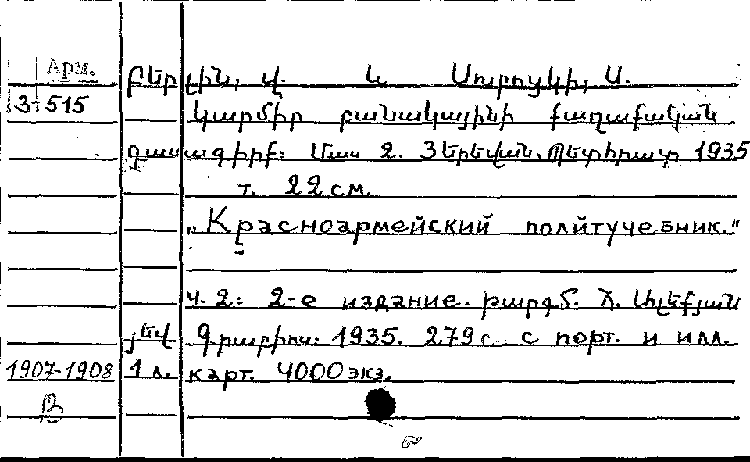 Арм. Բերլին, Վ. և Սոտոցկի, Ա.
3-515
Կարմիր բանակայինի քաղաքական
դասագիրք: Մաս 2. Յերեվան, Պետհրատ 1935
т. 22 см.
„Красноармейский политучебник."
ч. 2: 2-е издание. թարգմ. Հ.
յեվ 1935. 279 с. с порт. и илл.
1907-1908 1 л. карт. 4000 экз.